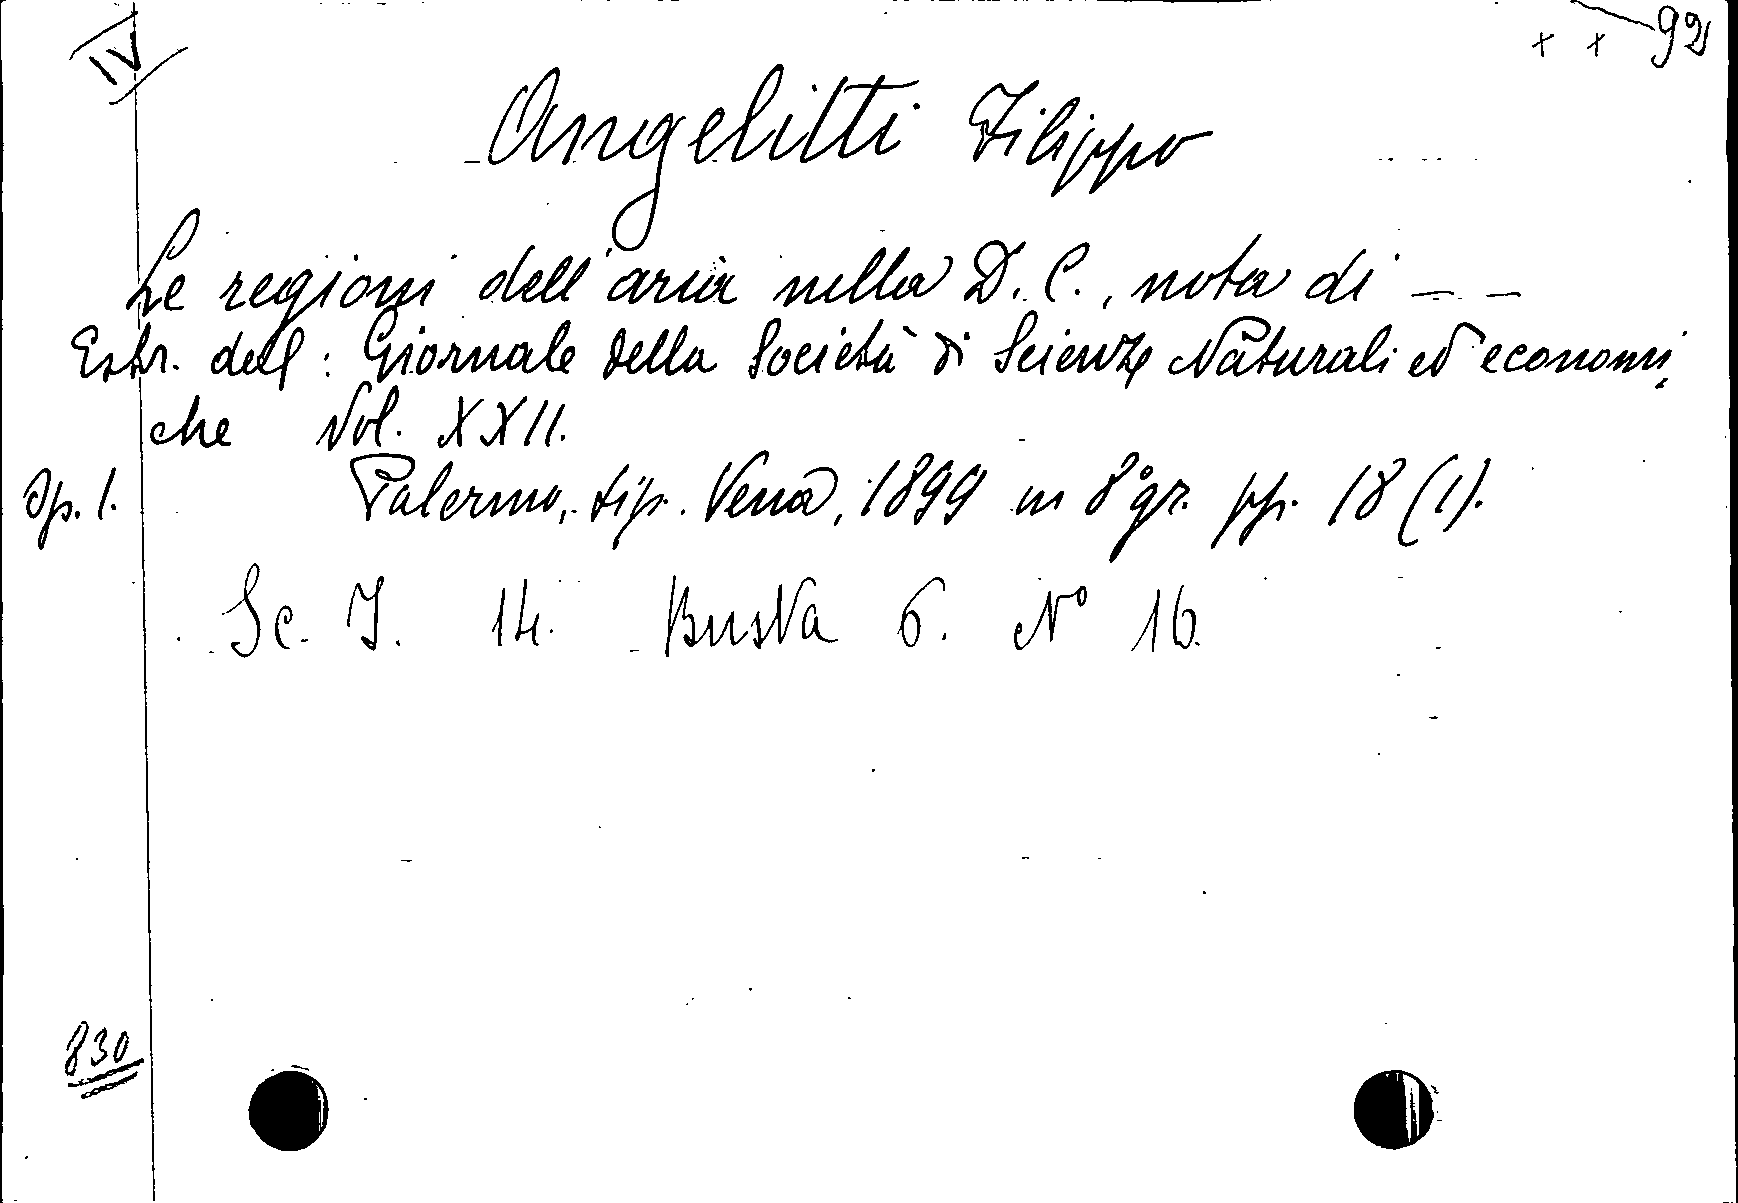 IV
+ + 92
Angelitti Filippo
Le regioni dell'aria nella D. C., nota di – –
Estr. dell: Giornale della Società di Scienze Naturali ed economi,
che Vol. XXII.
Op. 1. Palermo, tip. Vena, 1899 in 8° gr. pp. 18 (1).
Sc. I. 14. Busta 6. N° 16.
830